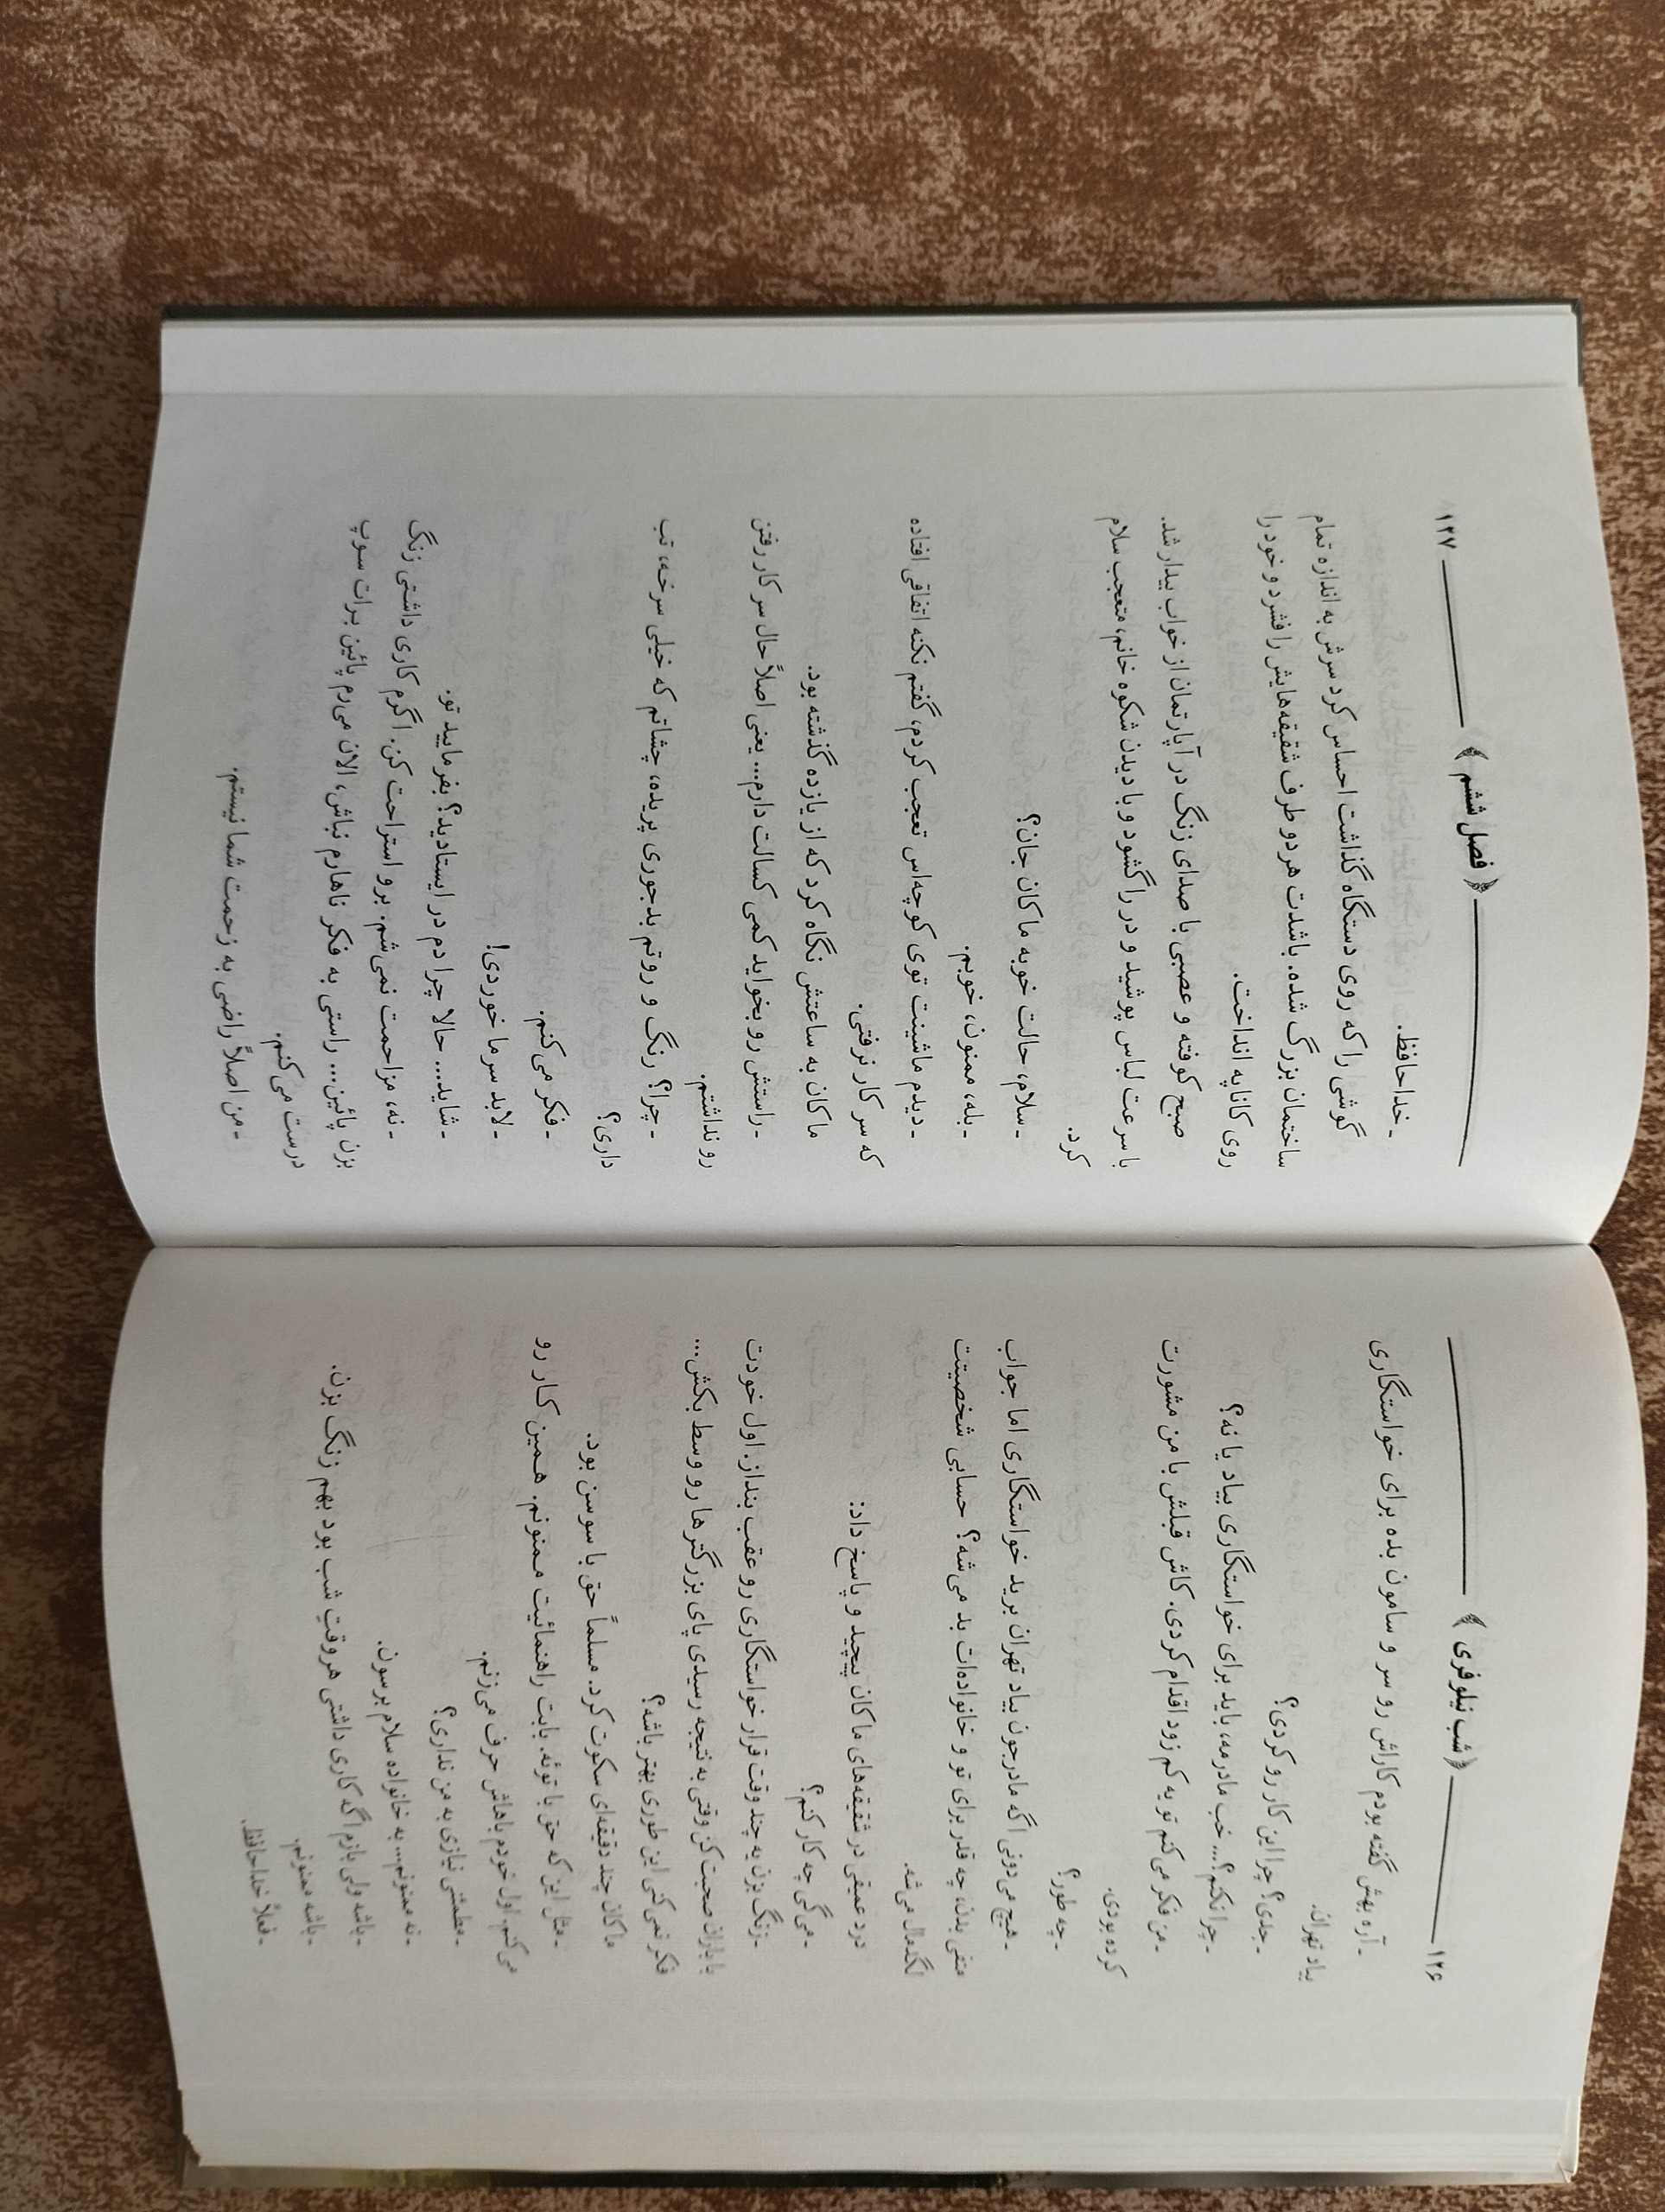 ۱۲۶ ﴿شب نیلوفری﴾
ـ آره بهش گفته بودم کاراش رو سر و سامون بده برای خواستگاری
بیاد تهران.
ـ جدی؟ چرا این کار رو کردی؟
ـ چرا نکنم؟... خب مادرمه، باید برای خواستگاری بیاد یا نه؟
ـ من فکر می‌کنم تو یه کم زود اقدام کردی. کاش قبلش با من مشورت
کرده بودی.
ـ چه طور؟
ـ هیچ می‌دونی اگه مادرجون بیاد تهران برید خواستگاری اما جواب
منفی بدن، چه قدر برای تو و خانواده‌ات بد می‌شه؟ حسابی شخصیتت
لگدمال می‌شه.
درد عمیقی در شقیقه‌های ماکان پیچید و پاسخ داد:
ـ می‌گی چه کار کنم؟
ـ زنگ بزن یه چند وقت قرار خواستگاری رو عقب بنداز. اول خودت
با باران صحبت کن وقتی به نتیجه رسیدی پای بزرگترها رو وسط بکش...
فکر نمی‌کنی این طوری بهتر باشه؟
ماکان چند دقیقه‌ای سکوت کرد. مسلماً حق با سوسن بود.
ـ مثل این که حق با توئه. بابت راهنمائیت ممنونم. همین کار رو
می‌کنم. اول خودم باهاش حرف می‌زنم.
ـ مطمئنی نیازی به من نداری؟
ـ نه ممنونم... به خانواده سلام برسون.
ـ باشه ولی بازم اگه کاری داشتی هروقتِ شب بود بهم زنگ بزن.
ـ باشه ممنونم.
ـ فعلاً خداحافظ.
﴿فصل ششم﴾ ۱۲۷
ـ خداحافظ.
گوشی را که روی دستگاه گذاشت احساس کرد سرش به اندازه تمام
ساختمان بزرگ شده. باشدت هردو طرف شقیقه‌هایش را فشرد و خود را
روی کاناپه انداخت.
صبح کوفته و عصبی با صدای زنگ در آپارتمان از خواب بیدار شد.
با سرعت لباس پوشید و در را گشود و با دیدن شکوه خانم، متعجب سلام
کرد.
ـ سلام، حالت خوبه ماکان جان؟
ـ بله، ممنون، خوبم.
ـ دیدم ماشینت توی کوچه‌اس تعجب کردم، گفتم نکنه اتفاقی افتاده
که سر کار نرفتی.
ماکان به ساعتش نگاه کرد که از یازده گذشته بود.
ـ راستش رو بخواید کمی کسالت دارم... یعنی اصلاً حال سر کار رفتن
رو نداشتم.
ـ چرا؟ رنگ و روتم بدجوری پریده، چشاتم که خیلی سرخه، تب
داری؟
ـ فکر می‌کنم.
ـ لابد سرما خوردی!
ـ شاید... حالا چرا دم در ایستادید؟ بفرمایید تو.
ـ نه، مزاحمت نمی‌شم. برو استراحت کن. اگرم کاری داشتی زنگ
بزن پائین... راستی به فکر ناهارم نباش، الان می‌رم پائین برات سوپ
درست می‌کنم.
ـ من اصلاً راضی به زحمت شما نیستم.